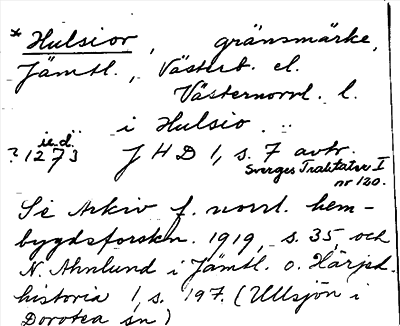 * Hulsior, gränsmärke,
Jämtl., Västerb. el.
Västernorrl. l.
i Hulsio ..
u.d.
? 1273 J H D 1, s. 7 avtr.
Sveriges Traktater I
nr 120.
Se Arkiv f. norrl. hem-
bygdsforskn. 1919, s. 35, och
N. Ahnlund i Jämtl. o. Härjed.
historia 1, s. 197. (Ullsjön i
Dorotea sn)